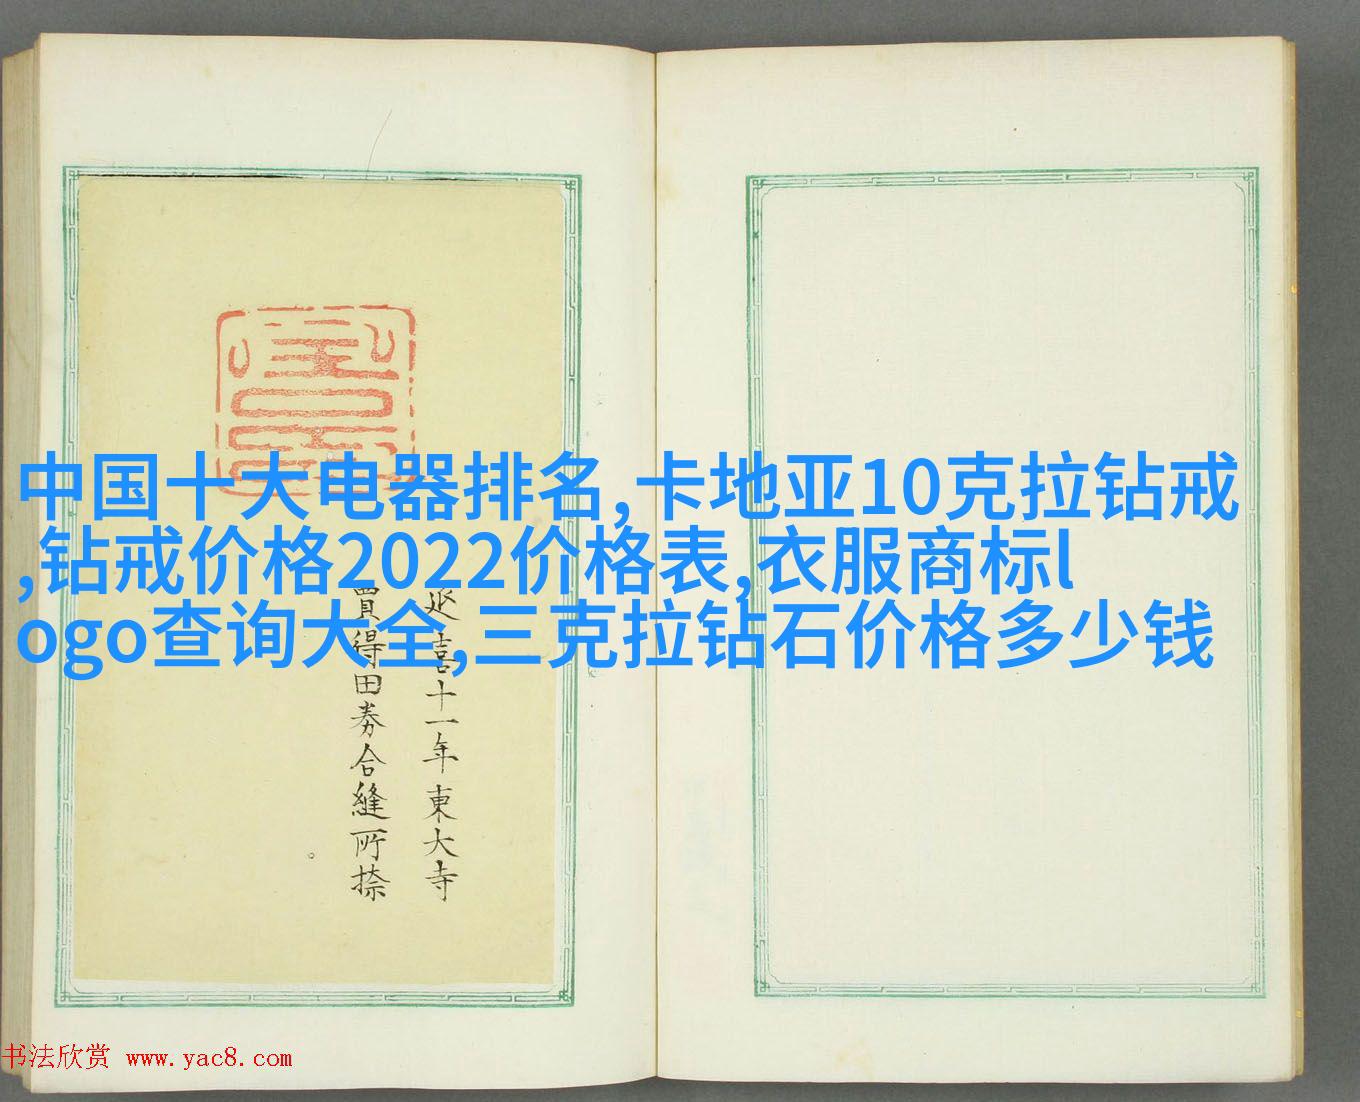 中国十大电器排名,卡地亚10克拉钻戒
,钻戒价格2022价格表,衣服商标l
ogo查询大全,三克拉钻石价格多少钱
延喜十一年東大寺
買得田券合縫所捺
书法欣赏 www.yac8.com